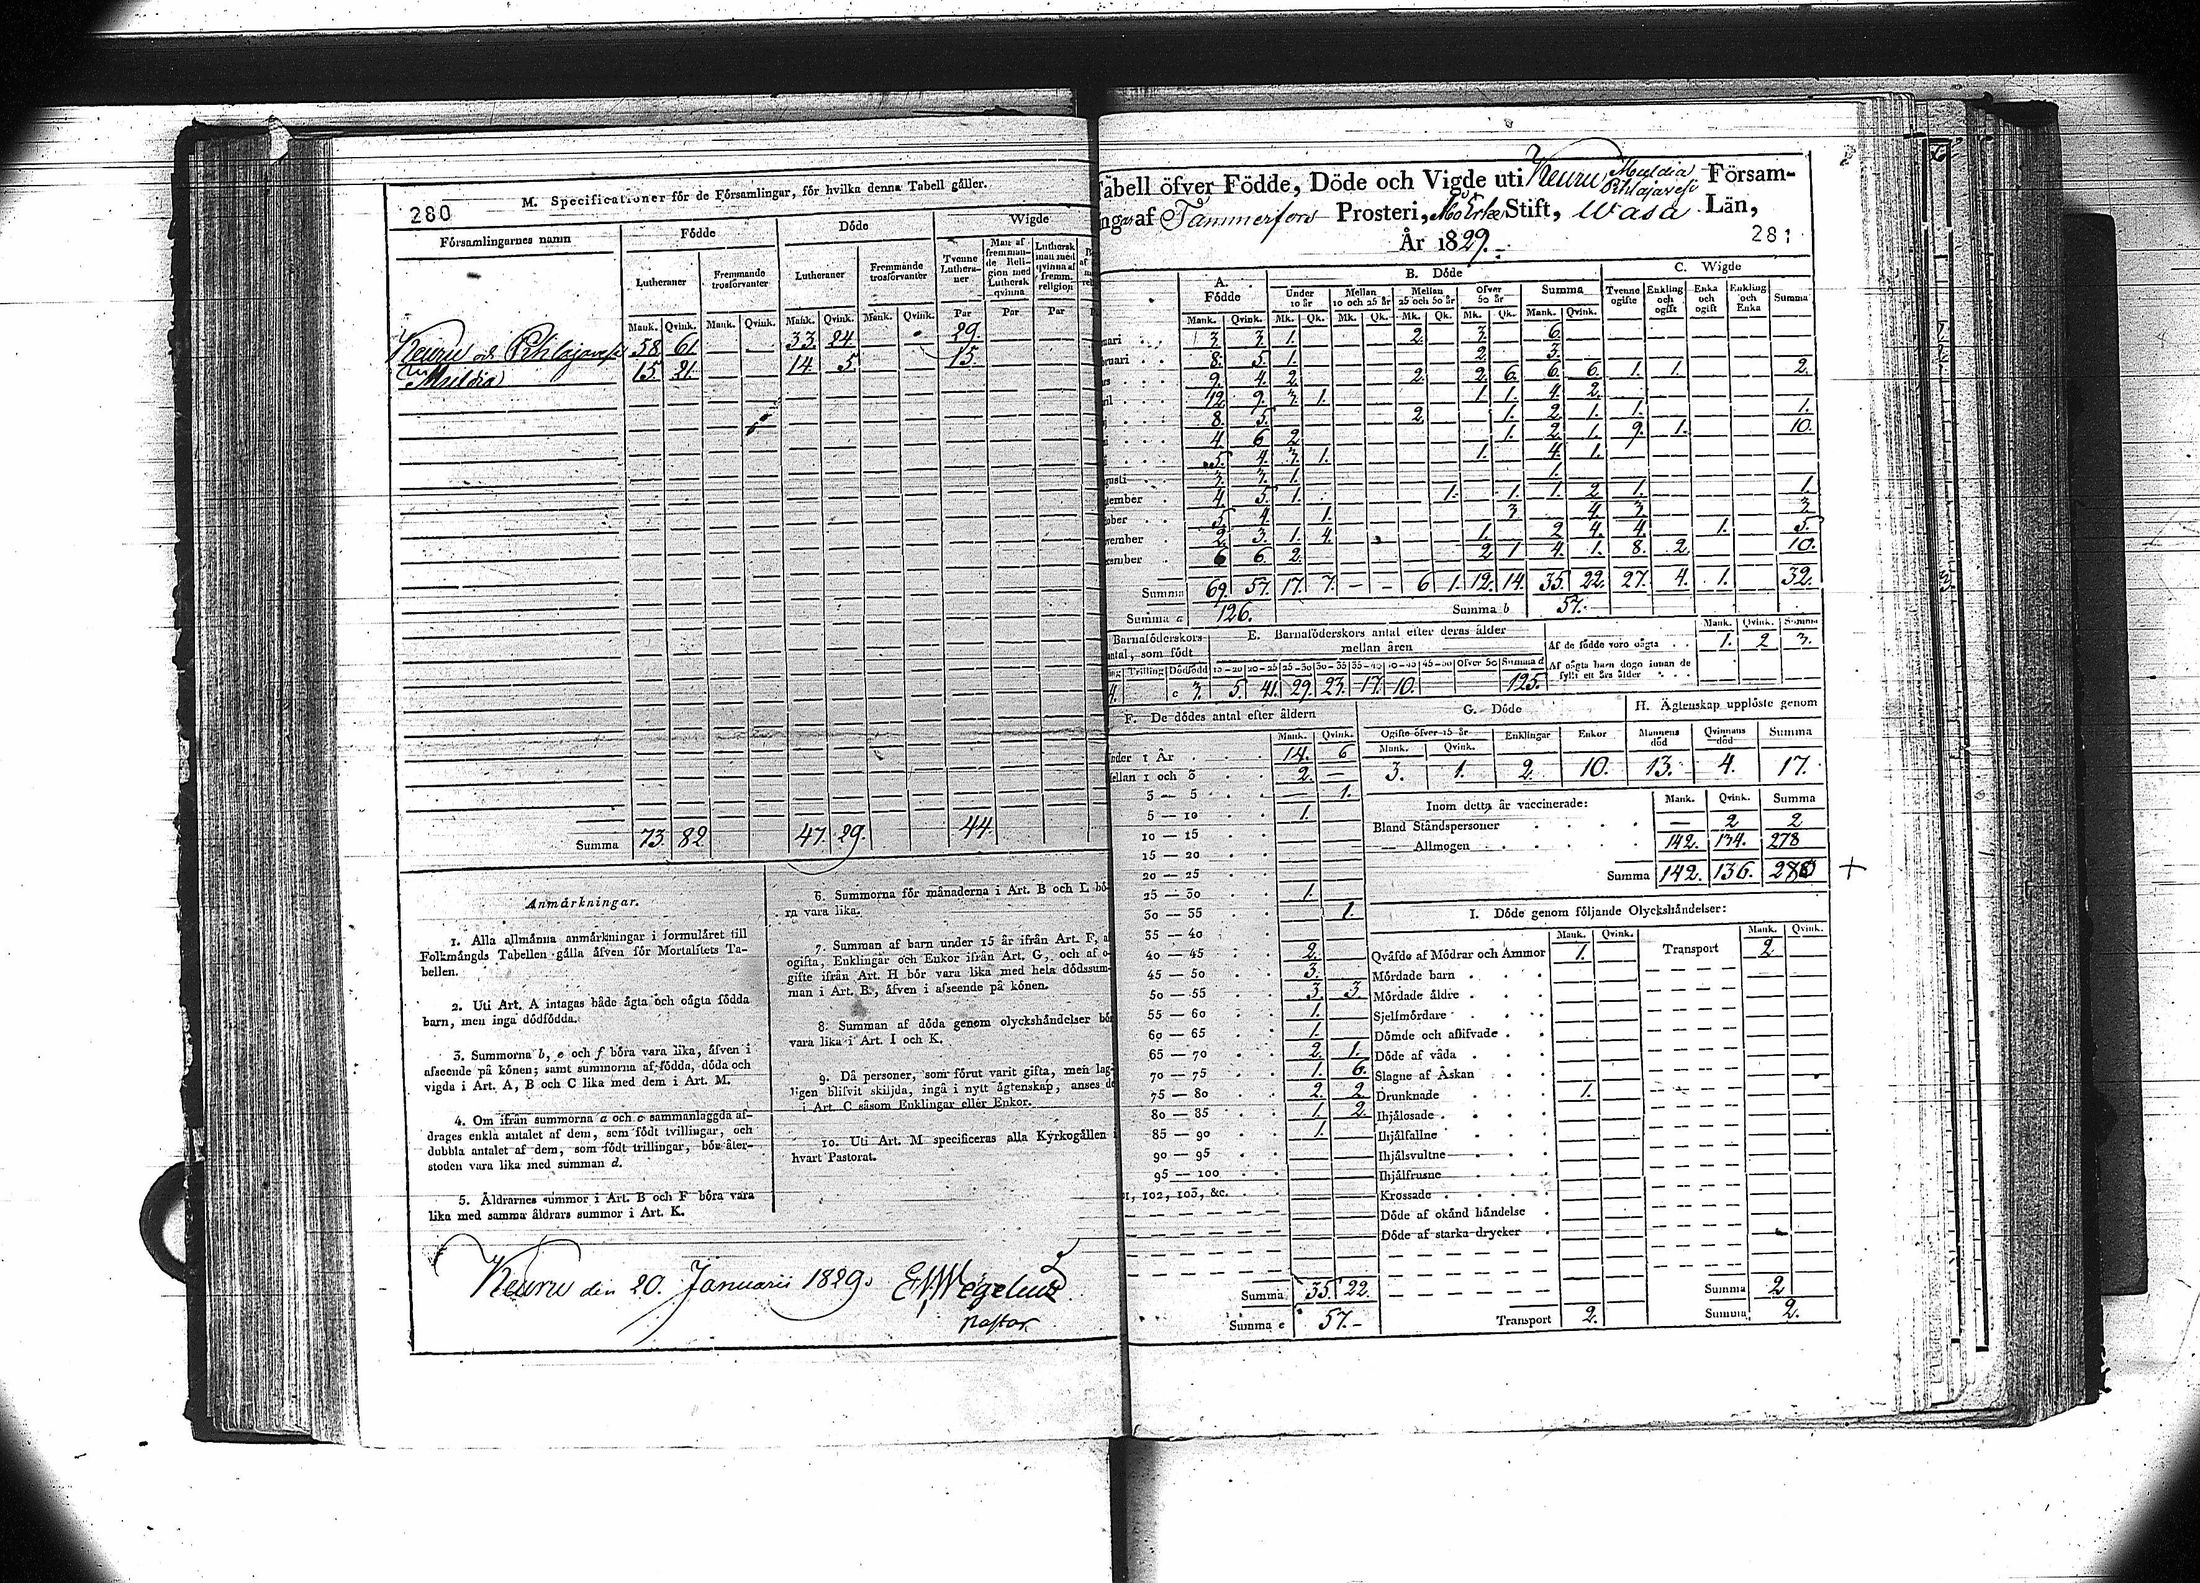 280
M. Specificationer för de Församlingar, för hvilka denna Tabell gäller.
Församlingarnes namn Födde Döde Wigde
Lutheraner Fremmande trosförvanter Lutheraner Fremmande trosförvanter Tvenne Lutheraner Man af fremmande Religion med Luthersk qvinna Luthersk man med qvinna af fremm. religion
Mank. Qvink. Mank. Qvink. Mank. Qvink. Mank. Qvink. Par Par Par
Keuru och Pihlajavesi 58 61 33. 24 29.
Muldia 15. 21. 14. 5. 15.
Summa 73. 82 47. 29. 44.
Anmärkningar.
1. Alla allmänna anmärkningar i formuläret till
Folkmängds Tabellen gälla äfven för Mortalitets Ta-
bellen.
2. Uti Art. A intagas både ägta och oägta födda
barn, men inga dödfödda.
3. Summorna b, e och f böra vara lika, äfven i
afseende på könen; samt summorna af födda, döda och
vigda i Art. A, B och C lika med dem i Art. M.
4. Om ifrån summorna a och c sammanlaggda af-
drages enkla antalet af dem, som födt tvillingar, och
dubbla antalet af dem, som födt trillingar, bör åter-
stoden vara lika med summan d.
5. Åldrarnes summor i Art. B och F böra vara
lika med samma åldrars summor i Art. K.
6. Summorna för månaderna i Art. B och L bö-
ra vara lika.
7. Summan af barn under 15 år ifrån Art. F, af
ogifta, Enklingar och Enkor ifrån Art. G, och af o-
gifte ifrån Art. H bör vara lika med hela dödssum-
man i Art. B., äfven i afseende på könen.
8. Summan af döda genom olyckshändelser bör
vara lika i Art. I och K.
9. Då personer, som förut varit gifta, men lag-
ligen blifvit skiljda, ingå i nytt ägtenskap, anses de
i Art. C såsom Enklingar eller Enkor.
10. Uti Art. M specificeras alla Kyrkogällen i
hvart Pastorat.
Keuru den 20. Januarii 1829. Wegelius
Pastor.
Tabell öfver Födde, Döde och Vigde uti Keuru Muldia Pihlajavesi Församl-
ngar af Tammerfors Prosteri, Åbo Erke Stift, Wasa Län,
År 1829.
281
A. Födde B. Döde C. Wigde
Under 10 år Mellan 10 och 25 år Mellan 25 och 50 år Öfver 50 år Summa Tvenne ogifte Enkling och ogift Enka och ogift Enkling och Enka Summa
Mank. Qvink. Mk. Qk. Mk. Qk. Mk. Qk. Mk. Qk. Mank. Qvink.
uari 3 3 1. 2. 3. 6.
ruari 8. 5. 1. 2. 3.
rs 9. 4. 2. 2. 2. 6. 6. 6. 1. 1. 2.
ril 12. 9. 3. 1. 1. 1. 4. 2.
8. 5. 2. 1. 2. 1. 1. 1.
4. 6. 2. 1. 2. 1. 9. 1. 10.
5. 4. 3. 1. 1. 4. 1.
gusti 3. 3. 1. 1.
tember 4. 5. 1. 1. 1. 1. 2. 1. 1.
ober 5. 4. 1. 3 4. 3. 3
vember 2. 3. 1. 4. 1. 2 4. 4. 1. 5.
cember 6 6 2. 2 1 4. 1. 8. 2. 10.
Summa 69. 57. 17. 7. – – 6 1. 12. 14. 35. 22. 27. 4. 1. 32.
Summa a 126. Summa b 57.
Barnaföderskors
antal, som födt
Trilling Dödfödd
4. c 3.
E. Barnaföderskors antal efter deras ålder
mellan åren
15-20 20-25 25-30 30-35 35-40 40-45 45-50 Öfver 50 Summa d
5. 41. 29. 23. 17. 10. 125.
Mank. Qvink. Summa
Af de födde voro oägta . . 1. 2 3.
Af oägta barn dogo innan de
fyllt ett års ålder
F. De dödes antal efter åldern
Mank. Qvink.
nder 1 År 14. 6
ellan 1 och 3 2. —
3 — 5 — 1.
5 — 10 1.
10 — 15
15 — 20
20 — 25
25 — 30 1.
30 — 35 1.
35 — 40
40 — 45 2.
45 — 50 3.
50 — 55 3. 3.
55 — 60 1.
60 — 65 1.
65 — 70 2. 1.
70 — 75 1. 6.
75 — 80 2. 2
80 — 85 1. 2.
85 — 90 1.
90 — 95
95 — 100
101, 102, 103, &c.
Summa 35. 22.
Summa e 57.
G. Döde
Ogifte öfver 15 år Enklingar Enkor
Mank. Qvink.
3. 1. 2. 10.
H. Ägtenskap upplöste genom
Mannens död Qvinnans död Summa
13. 4. 17.
Inom detta år vaccinerade: Mank. Qvink. Summa
Bland Ståndspersoner — 2 2
— Allmogen 142. 134. 278
Summa 142. 136. 280 +
I. Döde genom följande Olyckshändelser:
Mank. Qvink. Mank. Qvink.
Qväfde af Mödrar och Ammor 1. Transport 2
Mördade barn
Mördade äldre
Sjelfmördare
Dömde och aflifvade
Döde af våda
Slagne af Åskan
Drunknade 1.
Ihjälosade
Ihjälfallne
Ihjälsvultne
Ihjälfrusne
Krossade
Döde af okänd händelse
Döde af starka drycker
Summa 2
Transport 2. Summa 2.